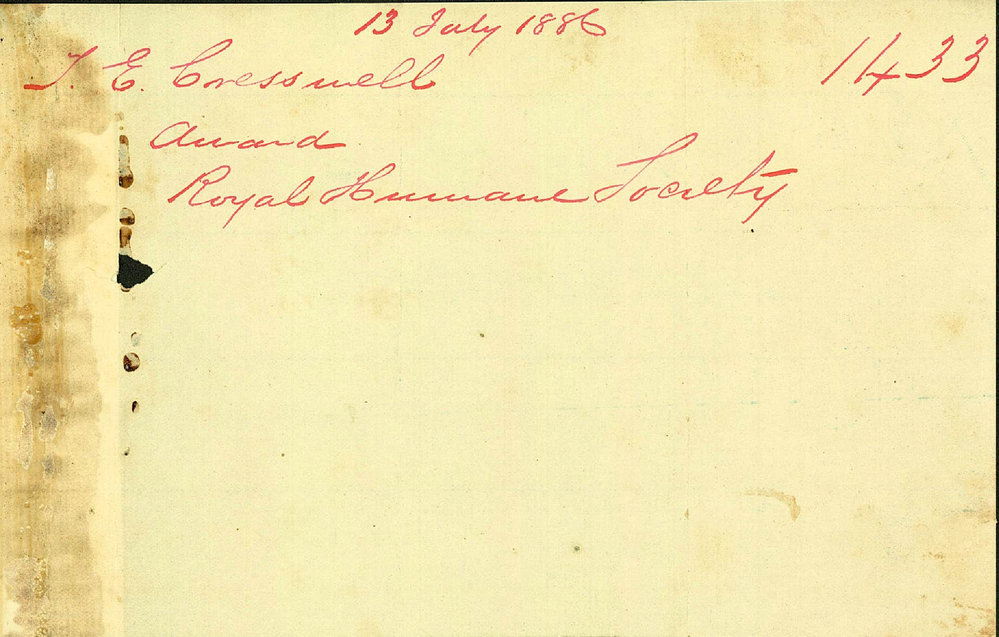 13 July 1886
T. E. Cresswell 1433
Award
Royal Humane Society